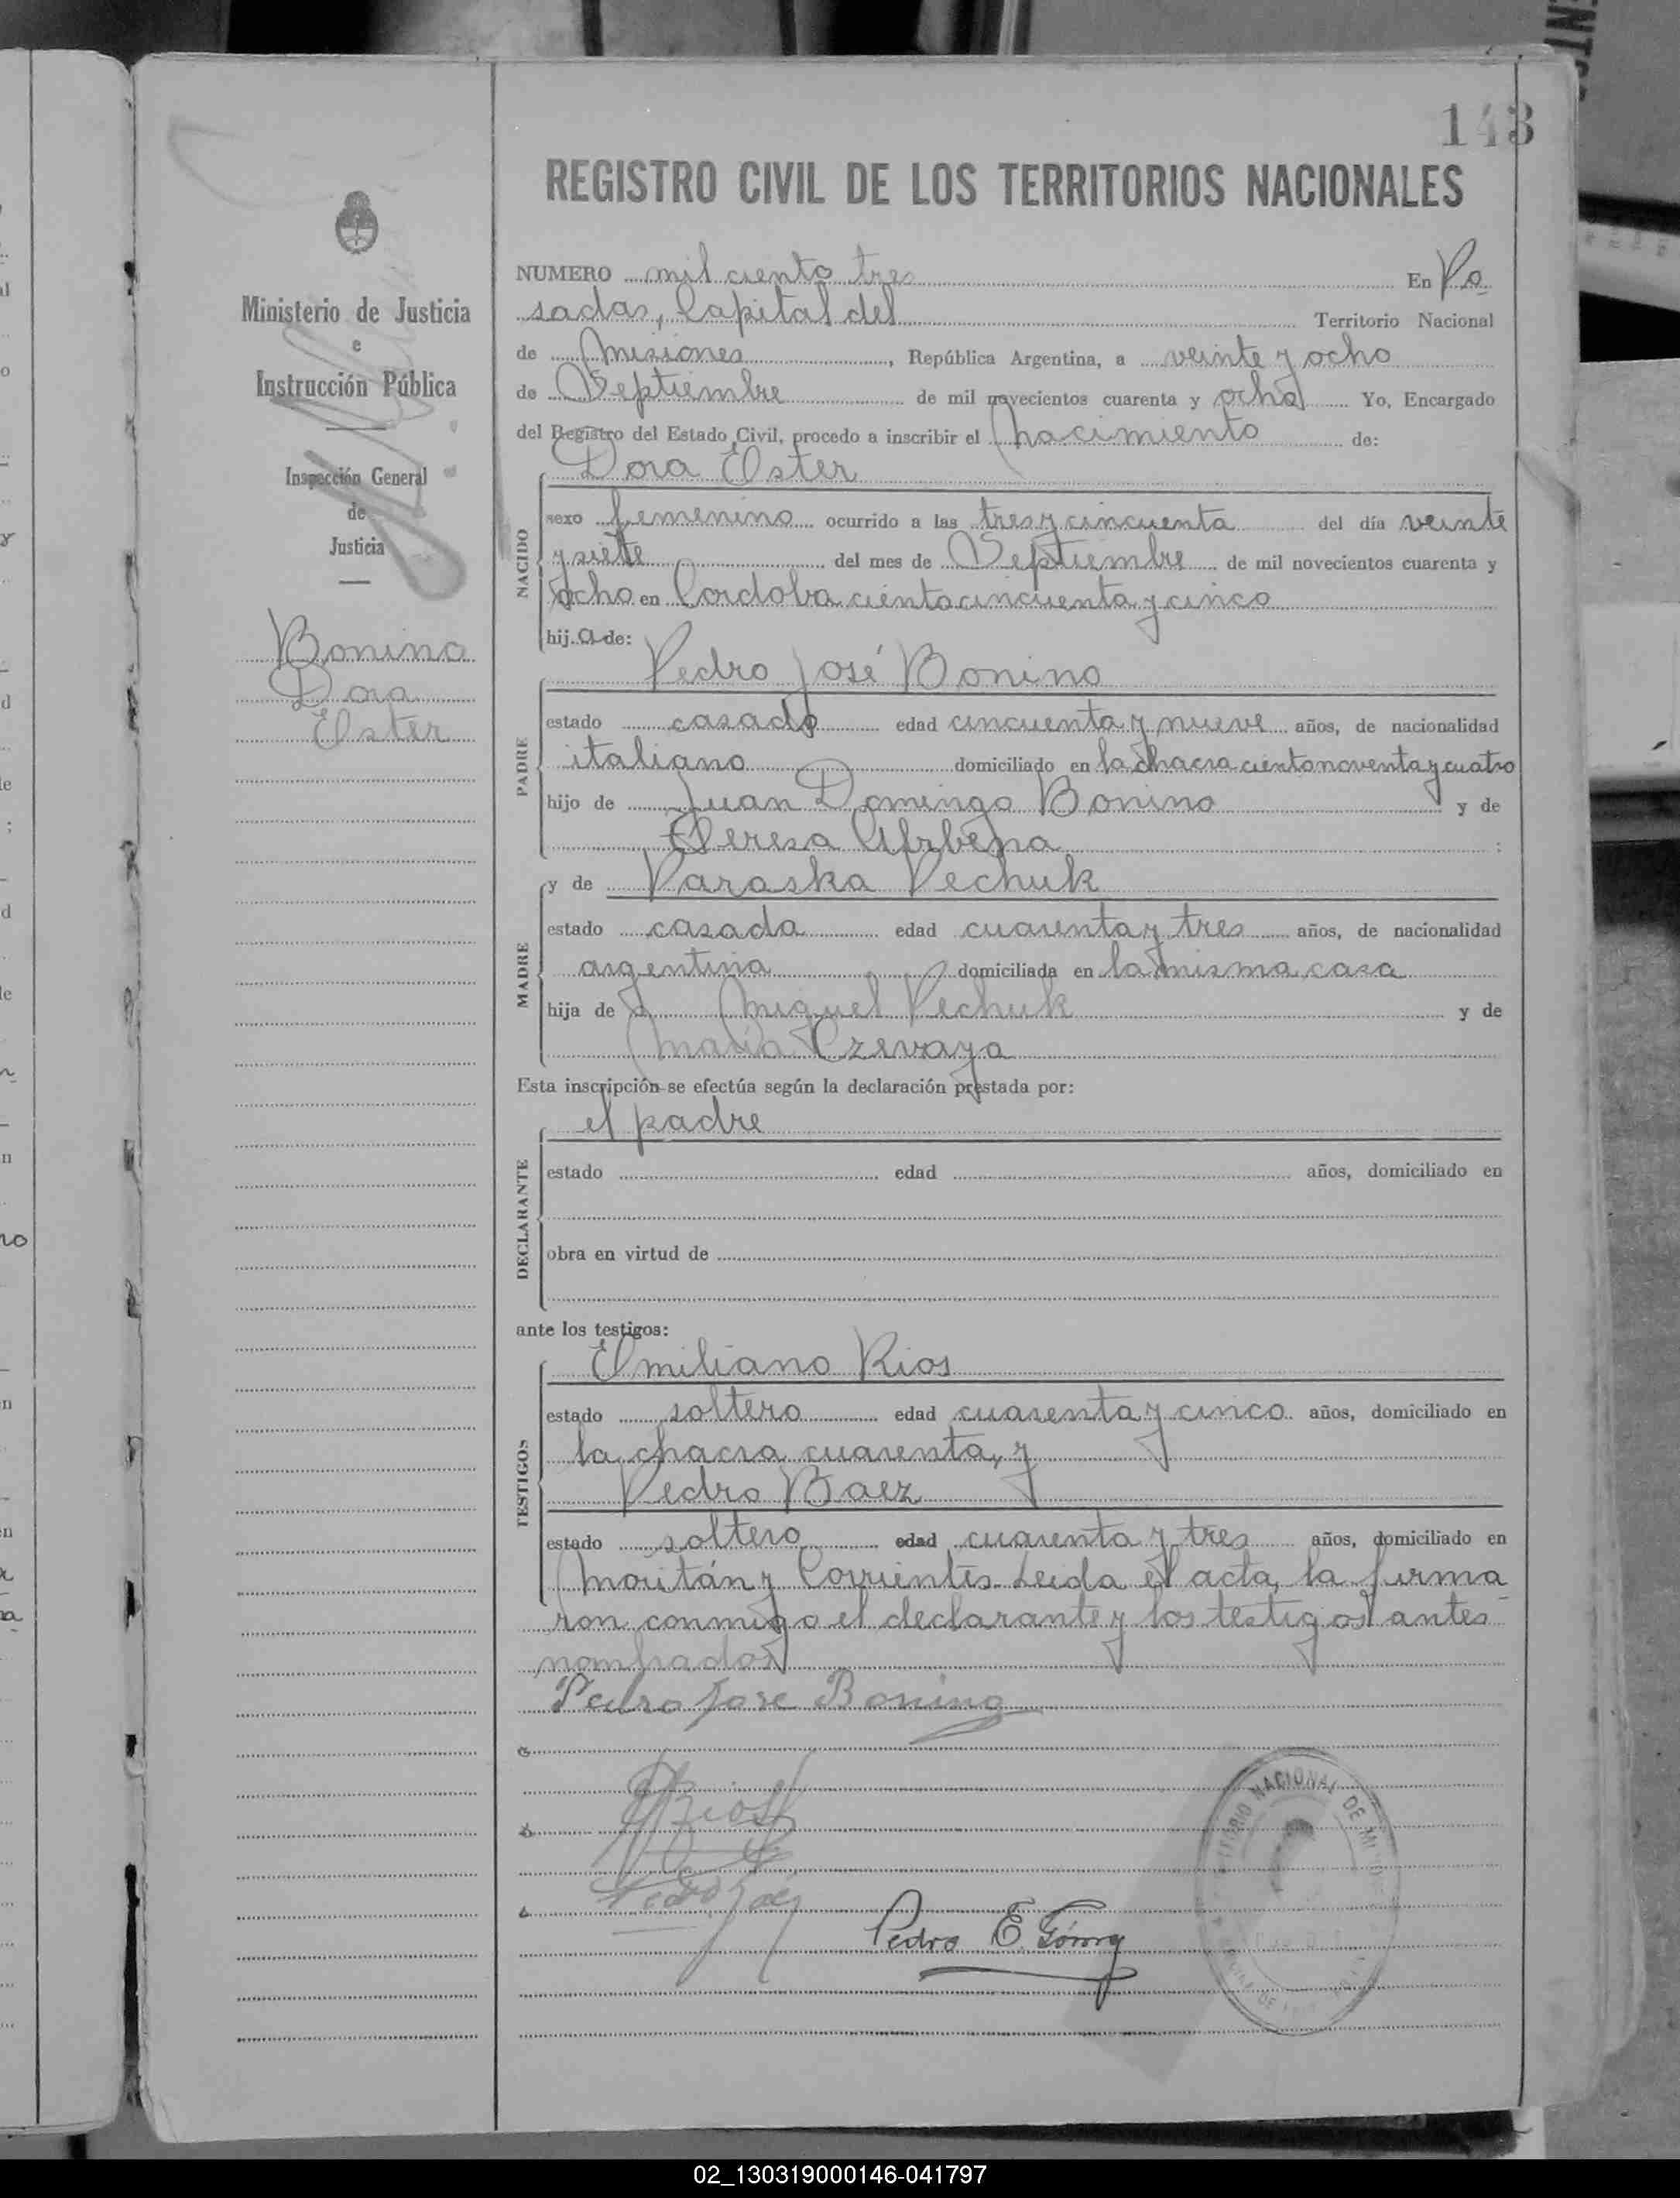 143
REGISTRO CIVIL DE LOS TERRITORIOS NACIONALES
Ministerio de Justicia
e
Instrucción Pública
Inspección General
de
Justicia
Bonino
Dora
Ester
NUMERO mil ciento tres En Po
sadas, Capital del Territorio Nacional
de Misiones, República Argentina, a veinte y ocho
de Septiembre de mil novecientos cuarenta y ocho Yo, Encargado
del Registro del Estado Civil, procedo a inscribir el nacimiento de:
Dora Ester
NACIDO
sexo femenino ocurrido a las tres y cincuenta del día veinte
y siete del mes de Septiembre de mil novecientos cuarenta y
ocho en Cordoba ciento cincuenta y cinco
hija de:
Pedro José Bonino
PADRE
estado casado edad cincuenta y nueve años, de nacionalidad
italiano domiciliado en la chacra ciento noventa y cuatro
hijo de Juan Domingo Bonino y de
Teresa :
MADRE
y de Paraska Pechuk
estado casada edad cuarenta y tres años, de nacionalidad
argentina domiciliada en la misma casa
hija de Miguel Pechuk y de
Maria Czevaya
Esta inscripción se efectúa según la declaración prestada por:
el padre
DECLARANTE
estado edad años, domiciliado en
obra en virtud de
ante los testigos:
Emiliano Rios
TESTIGOS
estado soltero edad cuarenta y cinco años, domiciliado en
la chacra cuarenta, y
Pedro Baez
estado soltero edad cuarenta y tres años, domiciliado en
Moritán y Corrientes. Leida el acta, la firma
ron conmigo el declarante y los testigos antes
nombrados
Pedro Jose Bonino
ERios
Pedro Báez
Pedro E. Gómez
NACIONAL DE
02_130319000146-041797